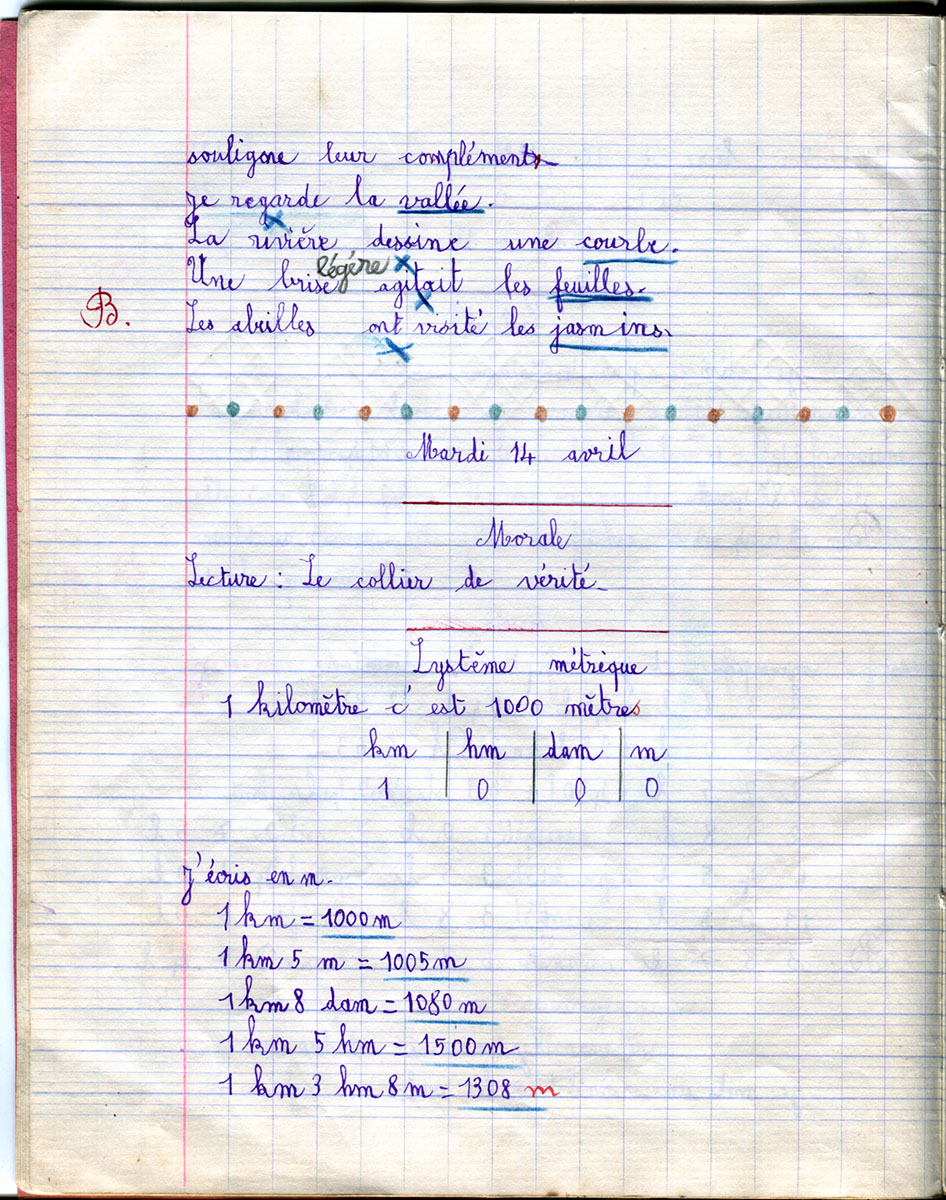 souligne leur complément
je regarde la vallée.
La rivière dessine une courbe.
Une brise légère agitait les feuilles.
B. Les abeilles ont visité les jasmins.
Mardi 14 avril
Morale
Lecture : Le collier de vérité.
Système métrique
1 kilomètre c'est 1000 mètres
km | hm | dam | m
1 0 0 0
j'écris en m.
1 km = 1000 m
1 km 5 m = 1005 m
1 km 8 dam = 1080 m
1 km 5 hm = 1500 m
1 km 3 hm 8 m = 1308 m